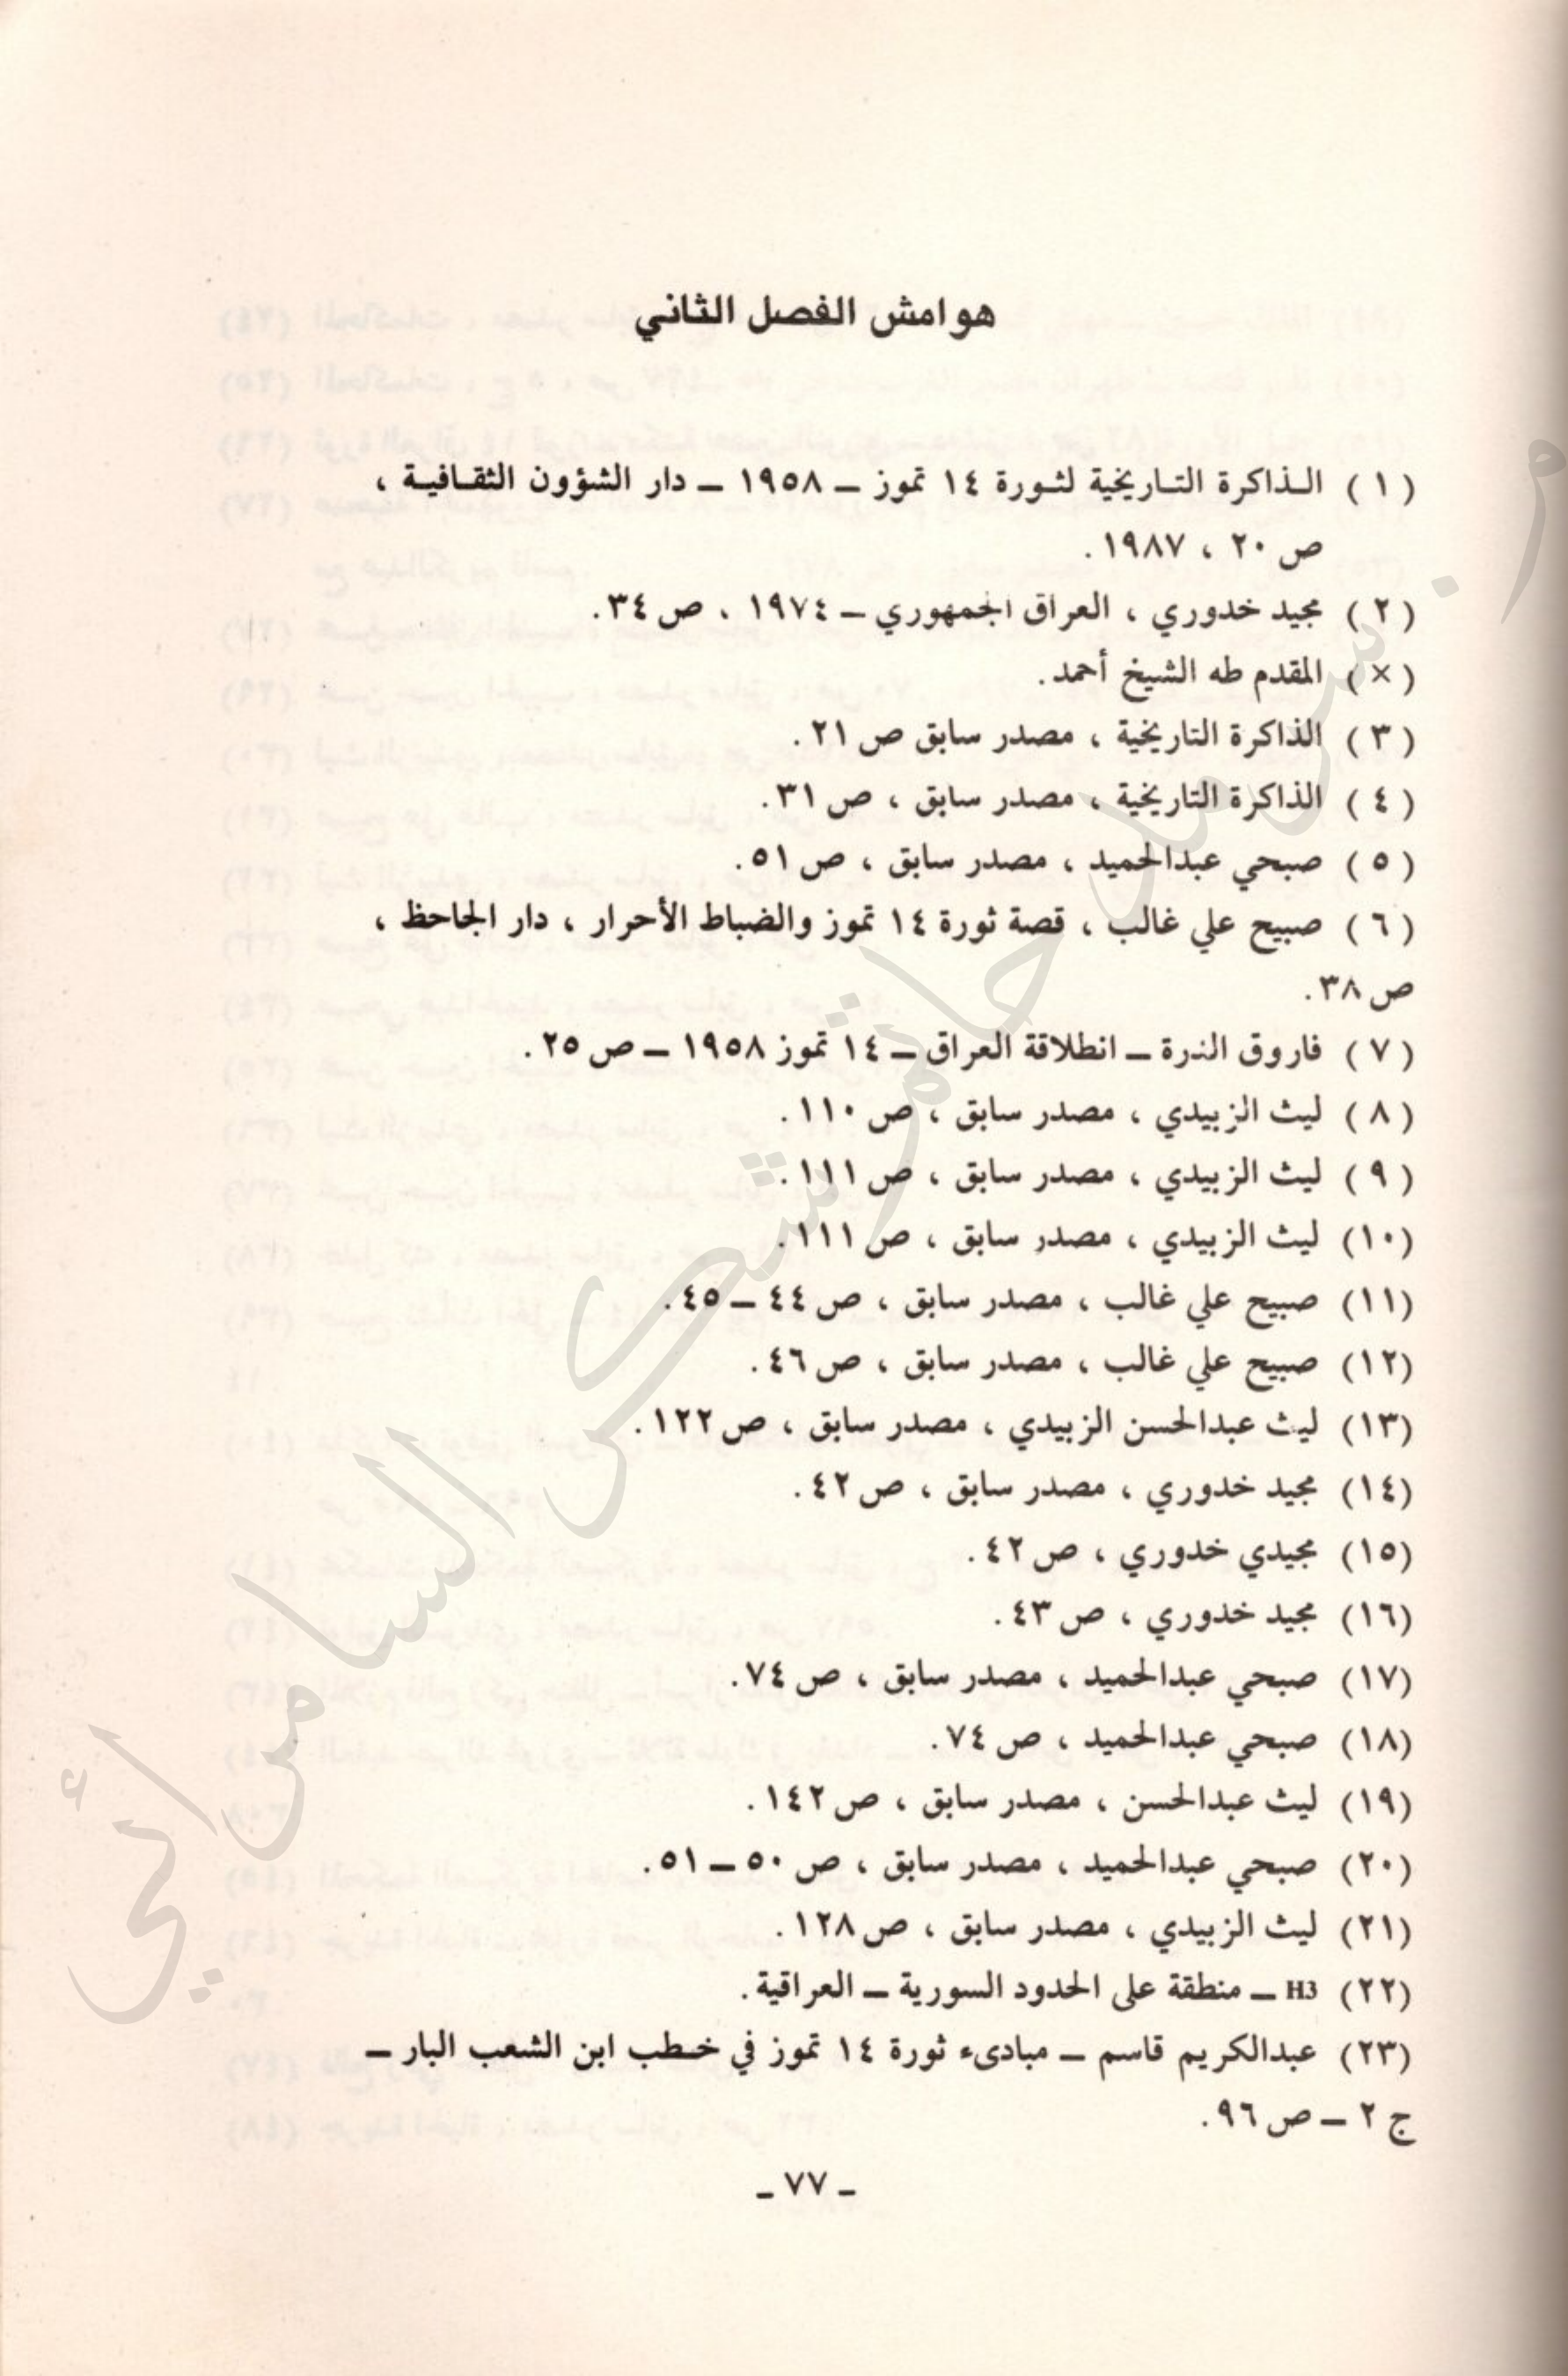 هوامش الفصل الثاني
( ١ ) الـذاكرة التـاريخية لثـورة ١٤ تموز – ١٩٥٨ – دار الشؤون الثقـافيـة ،
ص ٢٠ ، ١٩٨٧ .
( ٢ ) مجيد خدوري ، العراق الجمهوري – ١٩٧٤ ، ص ٣٤.
( × ) المقدم طه الشيخ أحمد.
( ٣ ) الذاكرة التاريخية ، مصدر سابق ص ٢١ .
( ٤ ) الذاكرة التاريخية ، مصدر سابق ، ص ٣١.
( ٥ ) صبحي عبدالحميد ، مصدر سابق ، ص ٥١.
( ٦ ) صبيح علي غالب ، قصة ثورة ١٤ تموز والضباط الأحرار ، دار الجاحظ ،
ص ٣٨.
( ٧ ) فاروق الدرة – انطلاقة العراق – ١٤ تموز ١٩٥٨ – ص ٢٥ .
( ٨ ) ليث الزبيدي ، مصدر سابق ، ص ١١٠ .
( ٩ ) ليث الزبيدي ، مصدر سابق ، ص ١١١ .
(١٠) ليث الزبيدي ، مصدر سابق ، ص ١١١ .
(١١) صبيح علي غالب ، مصدر سابق ، ص ٤٤ – ٤٥ .
(١٢) صبيح علي غالب ، مصدر سابق ، ص ٤٦ .
(١٣) ليث عبدالحسن الزبيدي ، مصدر سابق ، ص ١٢٢ .
(١٤) مجيد خدوري ، مصدر سابق ، ص ٤٢ .
(١٥) مجيدي خدوري ، ص ٤٢ .
(١٦) مجيد خدوري ، ص ٤٣ .
(١٧) صبحي عبدالحميد ، مصدر سابق ، ص ٧٤ .
(١٨) صبحي عبدالحميد ، ص ٧٤ .
(١٩) ليث عبدالحسن ، مصدر سابق ، ص ١٤٢ .
(٢٠) صبحي عبدالحميد ، مصدر سابق ، ص ٥٠ – ٥١ .
(٢١) ليث الزبيدي ، مصدر سابق ، ص ١٢٨ .
(٢٢) H3 – منطقة على الحدود السورية – العراقية .
(٢٣) عبدالكريم قاسم – مبادىء ثورة ١٤ تموز في خـطب ابن الشعب البار –
ج ٢ – ص ٩٦ .
– ٧٧ –
من سرمد حاتم شكر السامرائي